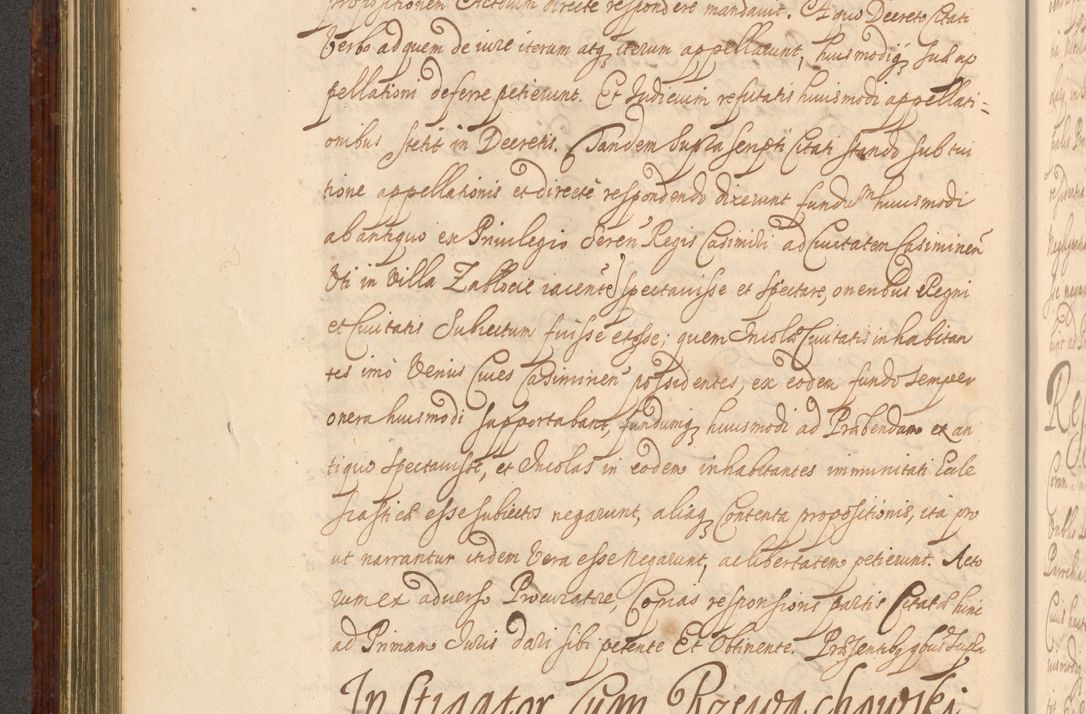 propositionem Actorum directe respondere mandavit. A quo Decreto Citati
Verbo ad quem de iure iterum atq iterum appellarunt, huiusmodiq Suæ ap
pellationi deferre petierunt. Et Iudicium refutatis huiusmodi appellati=
onibus stetit in Decretis. Tandem Supra Scripti Citati stando sub tui
tione appellationis et directe respondendo dixerunt fundum huiusmodi
ab antiquo ex Privilegio Seren Regis Casimiri ad Civitatem Casiminen
Uti in Villa Zablocie iacente spectavisse et spectare, oneribus Regni
et Civitatis Subiectum fuisse et esse; quem Incolæ Civitatis inhabitan
tes imò Verius Cives Casiminen possidentes, ex eodem fundo semper
onera huiusmodi supportabant, fundumq huiusmodi ad Præbendam ex an
tiquo spectavisse, et Incolas in eodem inhabitantes immunitati Eccle
siasticæ esse subiectos negarunt, aliaq Contenta propositionis, ita pro
ut narrantur itidem Vera esse negarunt, ac libertatem petierunt. Acto
rum ex adverso Procuratore, Copias responsionis partis Citatæ hinc
ad Primam Iuris dari sibi petente Et Obtinente. Præsentibq qbus Supra
Instigator Cum Rozwachowski